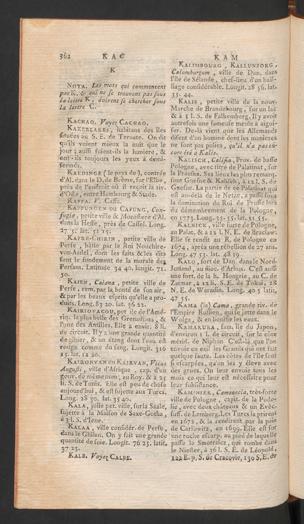 362
KAC
K
NOTA. Les mots qui commencent
par K, & qui ne se trouvent pas sous
la lettre K, doivent se chercher sous
la lettre C.
KACHAO, Voyez CACHAO.
KAZERLAKES, habitans des îles
situées au S. E. de Ternate. On dit
qu'ils voient mieux la nuit que le
jour; aussi fuient-ils la lumiere, &
ont-ils toujours les yeux à demi-
fermés.
d'Al. dans le D. de Brême, sur l'Elbe,
près de l'endroit où il reçoit la riv.
d'Oste, entre Hambourg & Stade.
KAFFA. V. Caffa.
petite ville & Monastere d'Al.
dans la Hesse, près de Cassel. Long.
27. 5. lat. 51. 15.
petite ville de
Perse, bâtie par le Roi
dont les faits & les dits
sont le fondement de la morale des
Persans. Latitude 34. 40. longit. 71.
50.
ville de
Perse, rem. par la bonté de son air,
& par les beaux esprits qu'elle a pro-
duits. Long. 52. 20. lat. 36. 22.
rique, la plus belle des Grenadines,
l'une des Antilles. Elle a envir. 8 li.
de circuit. Il y a une grande quantité
de gibier, & un étang dont l'eau est
rouge comme du sang. Longit. 316
25. lat. 12. 20.
KAIROVEN ou KAIRVAN, Vicus
Augusti, ville d'Afrique, cap. d'un
gouv. de même nom, au Roy. & à 25
li. S. de Tunis. Elle est peu de chose
aujourd'hui, & est sujette aux Turcs.
Long. 28. 30. lat. 35. 40.
KALA, jolie pet. ville, sur la Saale,
sujette à la Maison de Saxe-Gotha,
à 3 l. S. d'Iene.
KALAAR, ville considér. de Perse,
dans le Ghilan. On y fait une grande
quantité de soie. Longit. 76. 25. latit.
37. 25.
KALB, Voyez CALBE.
KAM
KALIMBOURG, KALLUNBORG,
ville de Dan. dans
l'île de Sélande, chef-lieu d'un bail-
liage considérable. Longit. 28. 56. lat.
55. 44.
KALIS, petite ville de la nouv.
Marche de Brandebourg, sur un lac
& à 5 l. S. de Falkenberg. Il y avoit
autrefois une manufacture à aigui-
ser. De-là vient que les Allemands
disent d'un homme dont les manieres
ne sont pas polies, qu'il n'a pas en-
core été à Kalis.
KALISCH, Calisia, Prov. de basse
Pologne, avec titre de Palatinat, sur
la Prosna. Ses lieux les plus remarq.
sont Gnesne & Kalisch, à 12 l. S. de
Gnesne. La partie de ce Palatinat qui
est au-delà de la Netze, a passé sous
la domination du Roi de Prusse lors
du démembrement de la Pologne,
en 1773. Long. 35. 55. lat. 51. 55.
KALNICK, ville forte de Pologne,
au Palat. & à 25 l. N. E. de Braclaw.
Elle se rendit au R. de Pologne en
1674, après une rébellion de 27 ans.
Long. 47. 53. lat. 48. 19.
KALO, fort, de Dan. dans le Nord-
Jutland, au dioc. d'Arhus. C'est aussi
une fort. de la h. Hongrie, au C. de
Zatmar, à 12 li. S. E. de Tokai, 28
N. E. de Waradin. Long. 40. 5. latit.
47. 55.
KAMA (la) Cama, grande riv. de
l'Empire Russien, qui se jette dans le
Wolga, & en bouffit les eaux.
KAMAKURA, fam. île du Japon,
d'environ 1 li. de circuit, sur la côte
mérid. de Niphon. C'est-là que l'on
envoie en exil les grands qui ont fait
quelque faute. Les côtes de l'île sont
si escarpées, qu'on les y éleve avec
des grues. On leur envoie tous les
mois ce qui leur est nécessaire pour
leur subsistance.
KAMINIECK, Camenecia, très-forte
ville de Pologne, capit. de la Podo-
lie, avec deux châteaux & un Evêc.
suff. de Lemberg. Les Turcs la prirent
en 1672, & la rendirent par la paix
de Carlowitz, en 1699. Elle est sur
une roche escarp. au pied de laquelle
passe le Smotrzik, qui tombe dans
le Niester, à 36 l. S. E. de Léopold,
122 E. p. S. de Cracovie, 130 S. E. de